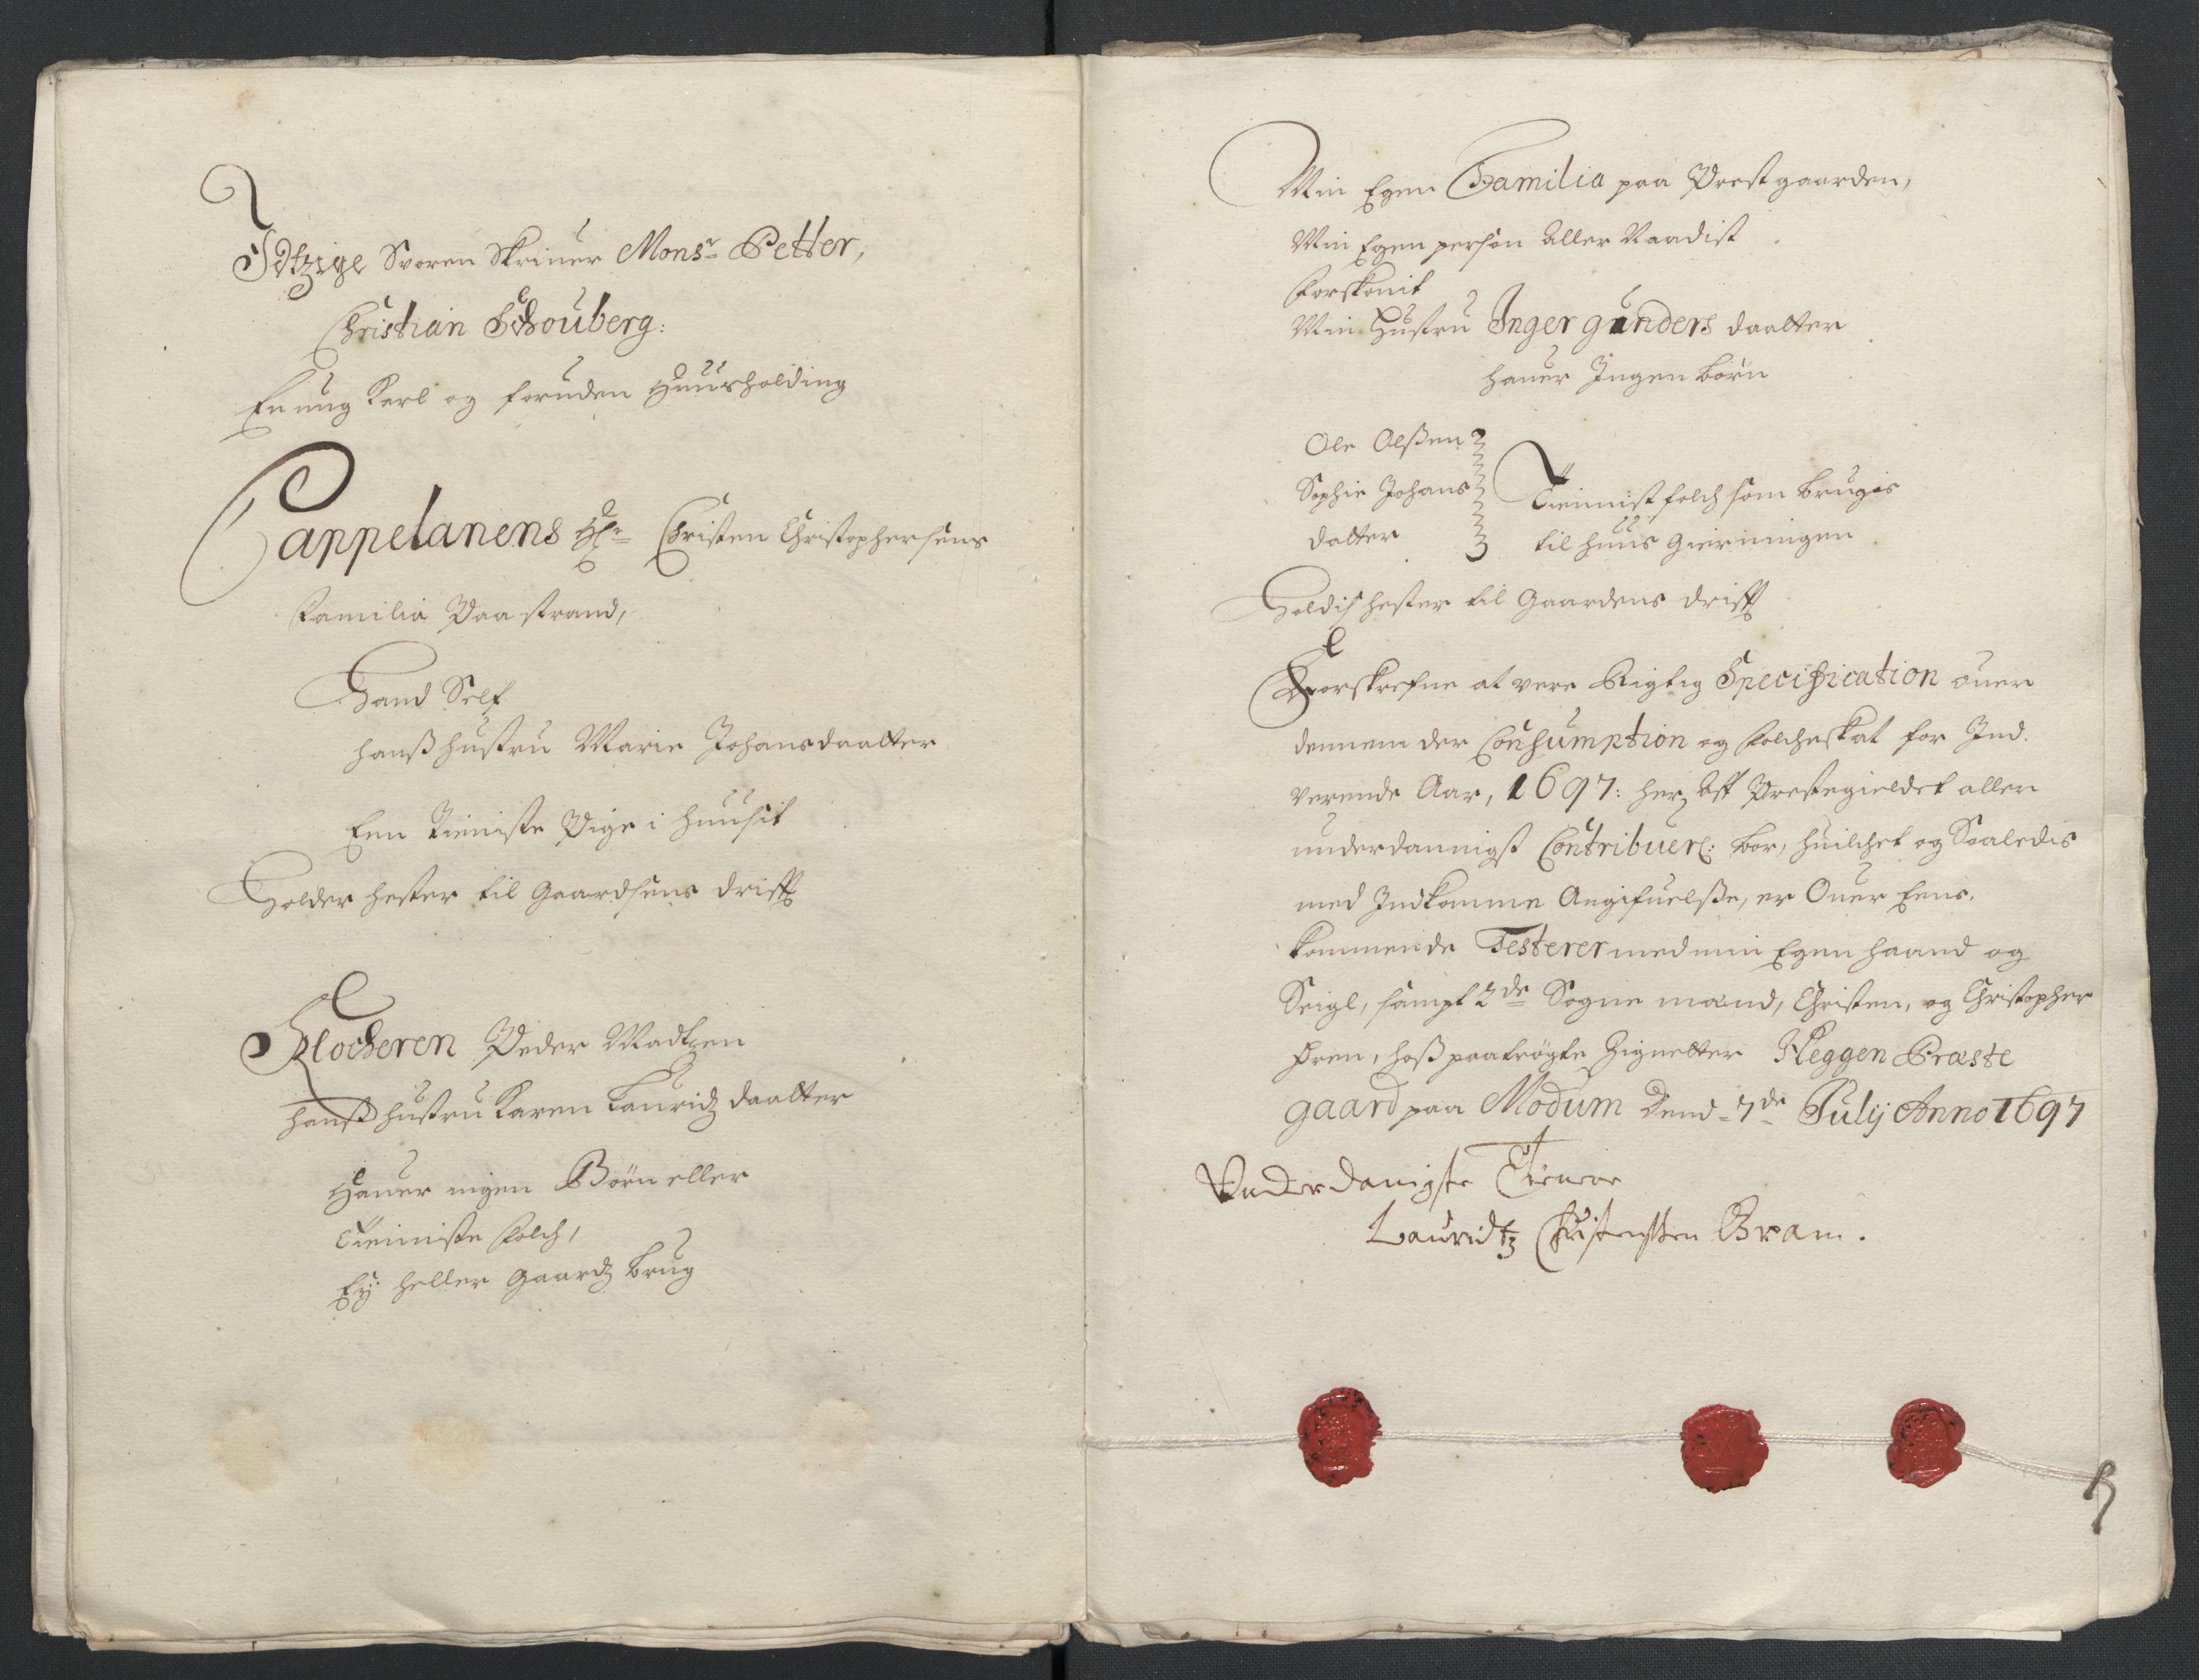 Idtzige Soren Skriuer Monsr Petter,
Christian Schouberg:
En ung Karl og foruden Huusholding
Cappelanens Hr Christen Christophersens
Familia Paa strand,
Hand Self
hanß hustru Marie Johansdaatter
Een Tieniste Pige i huusit
Holder hester til Gaardsens drifft
Klockeren Peder Madtzen
hanß hustru Karen Lauridz daatter
Hauer ingen Børn eller
Tieniste Folch,
Ey heller Gaardz brug
Min Egen Familia paa Prestgaarden,
Min Egen person Aller Naadist
Forskonit
Min Hustru Inger gunders daatter
hauer Ingen børn
Ole Olßen
Sophie Johans
datter
Tiennist folch som brugis
til huus gierningen
Holdis hester til Gaardens drifft
Forskrefne at vere Rigtig Specification ouer
dennem der Consumption og Folcheskat for Ind.
verende Aar, 1697: her aff Prestegieldet aller
underdannigst Contribuere: bør, huilchet og Saaledis
med Indkomne Angifuelße, er Ouer Eens.
kommende Testerer med min Egen haand og
Seigl, sampt 2de Sogne mænd, Christen, og Christopher
Øren, hoß paatrögte Zignetter Heggen Præste
gaard paa Modum Dend 7de Julij Anno 1697
Underdanigste Tienere
Lauridtz Christensßen Bram.